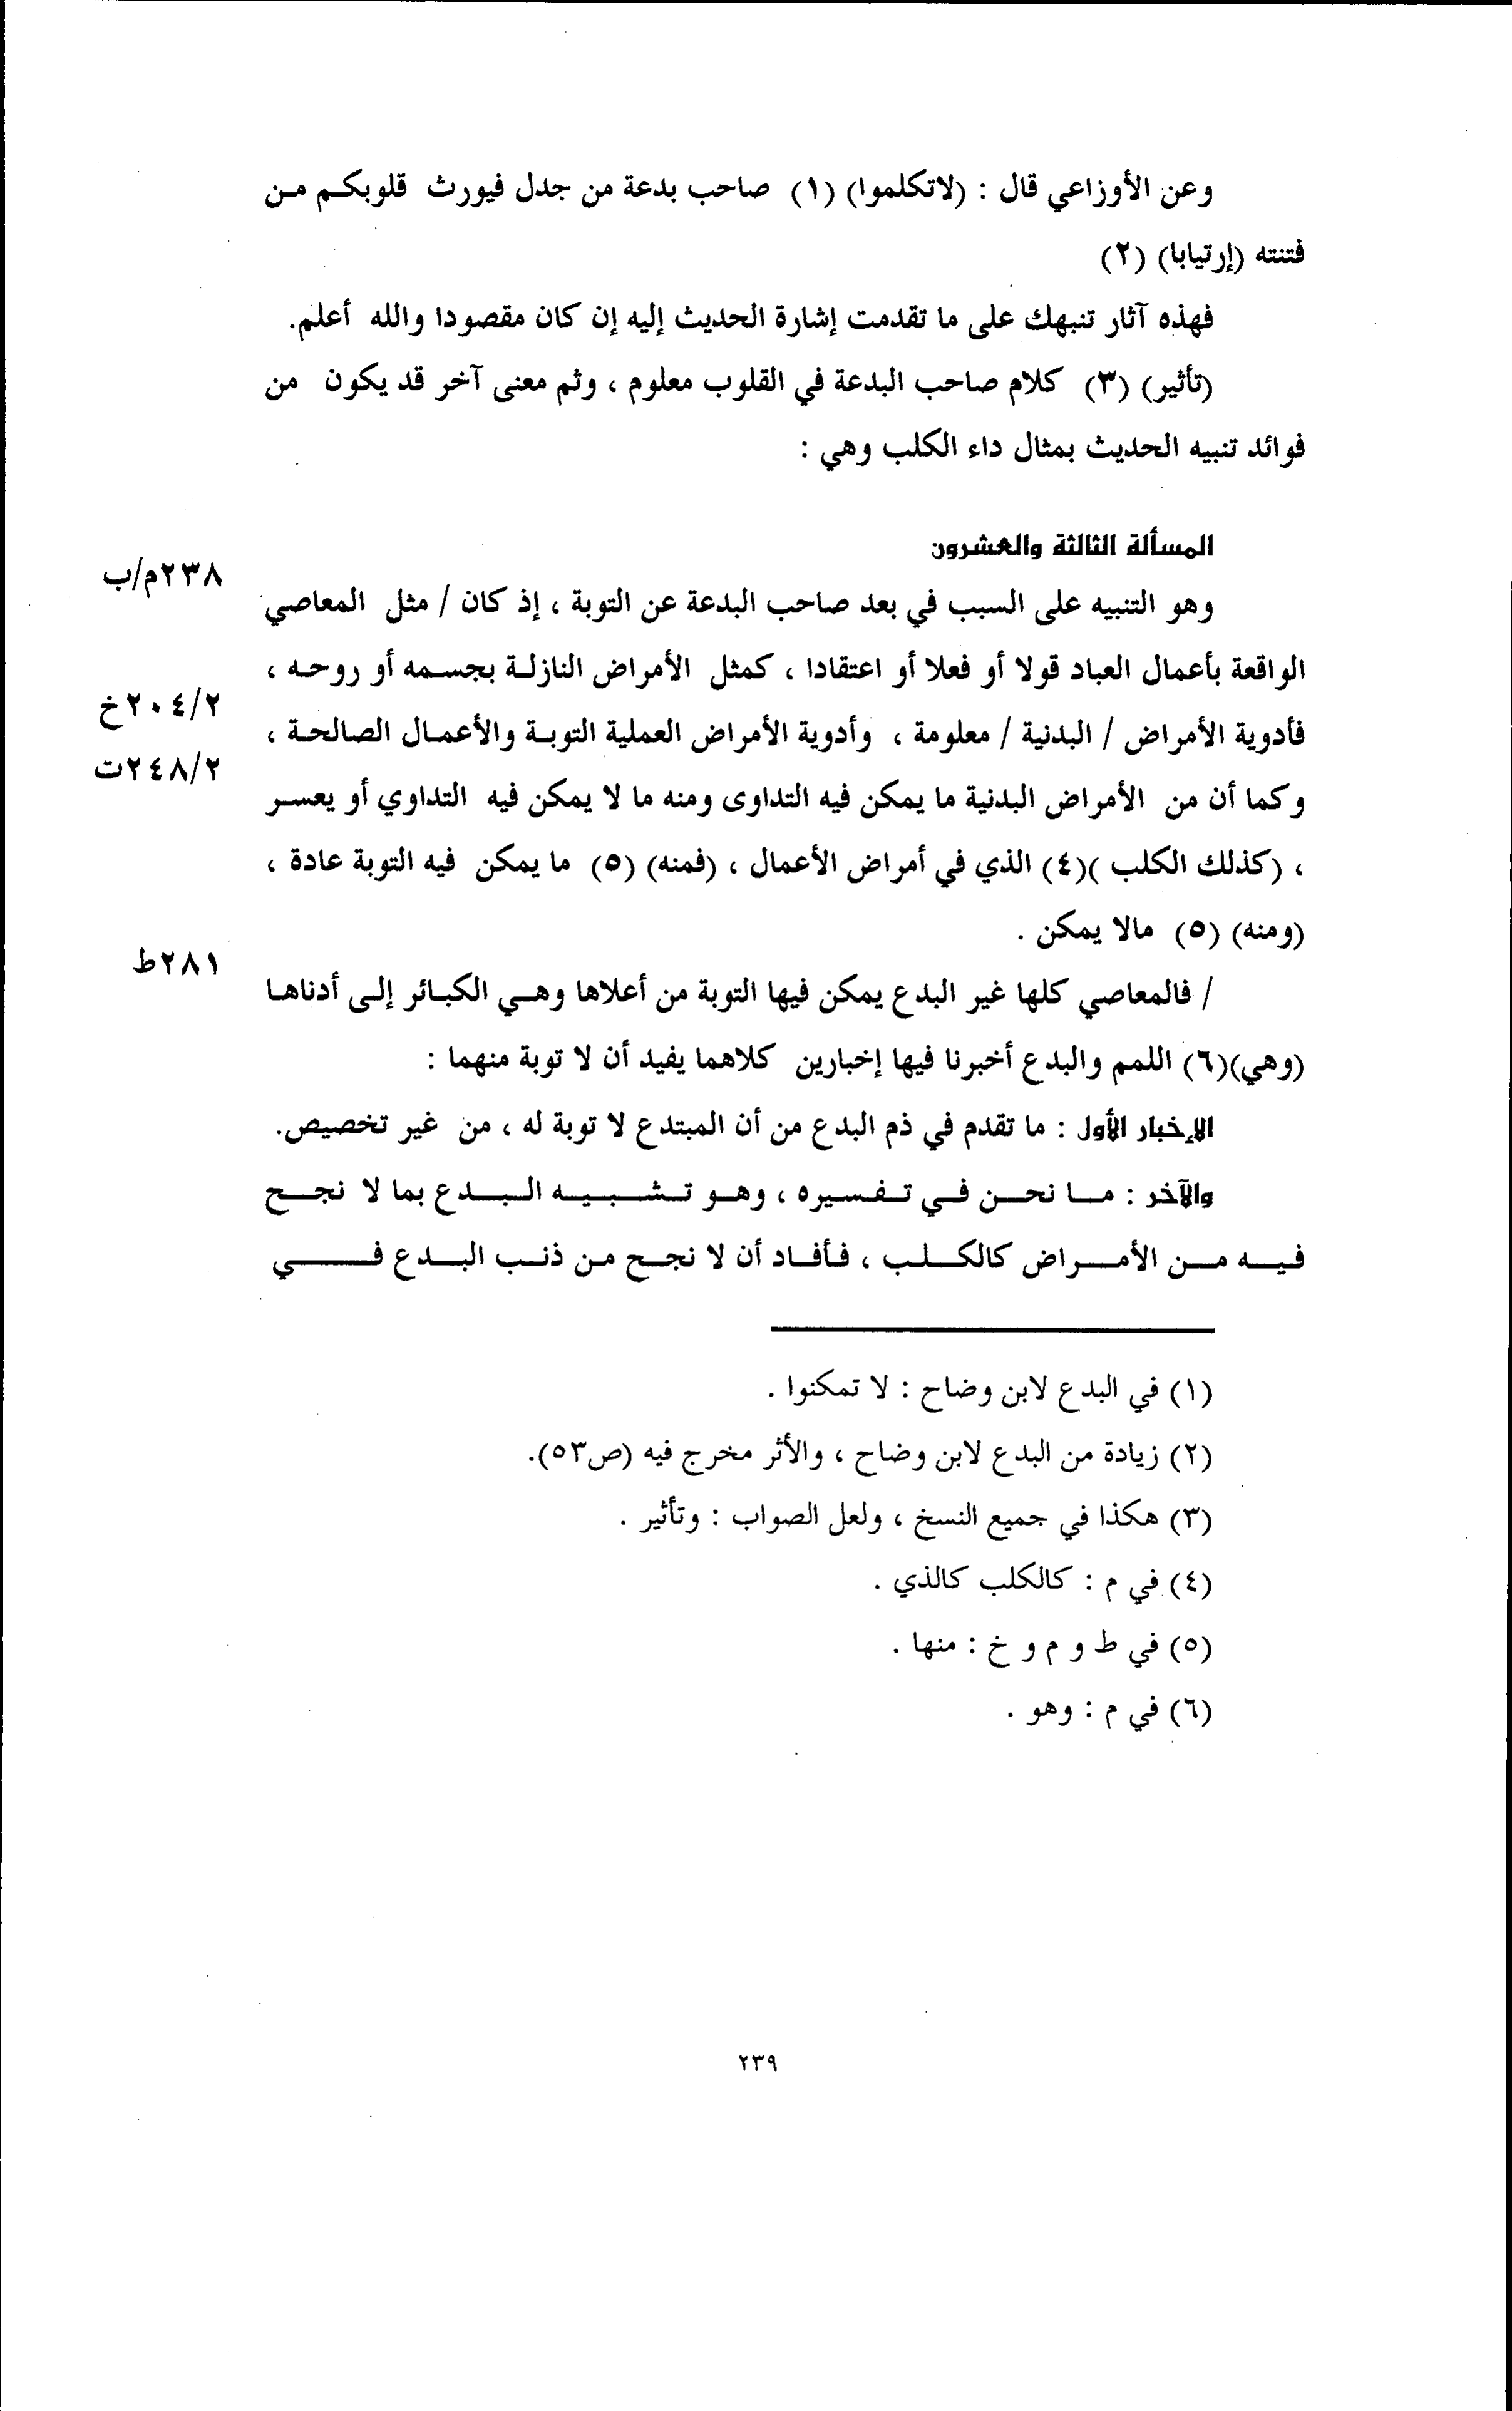 وعن الأوزاعي قال : (لاتكلموا) (١) صاحب بدعة من جدل فيورث قلوبكم من
فتنته (إرتيابا) (٢)
فهذه آثار تنبهك على ما تقدمت إشارة الحديث إليه إن كان مقصودا والله أعلم.
(تأثير) (٣) كلام صاحب البدعة في القلوب معلوم ، وثم معنى آخر قد يكون من
فوائد تنبيه الحديث بمثال داء الكلب وهي :
المسألة الثالثة والعشرون
٢٣٨م/ب
وهو التنبيه على السبب في بعد صاحب البدعة عن التوبة ، إذ كان / مثل المعاصي
الواقعة بأعمال العباد قولا أو فعلا أو اعتقادا ، كمثل الأمراض النازلة بجسمه أو روحه ،
٢٠٤/٢خ
فأدوية الأمراض / البدنية / معلومة ، وأدوية الأمراض العملية التوبة والأعمال الصالحة ،
٢٤٨/٢ت
وكما أن من الأمراض البدنية ما يمكن فيه التداوى ومنه ما لا يمكن فيه التداوي أو يعسر
، (كذلك الكلب )(٤) الذي في أمراض الأعمال ، (فمنه) (٥) ما يمكن فيه التوبة عادة ،
(ومنه) (٥) مالا يمكن .
٢٨١ط
/ فالمعاصي كلها غير البدع يمكن فيها التوبة من أعلاها وهي الكبائر إلى أدناها
(وهي)(٦) اللمم والبدع أخبرنا فيها إخبارين كلاهما يفيد أن لا توبة منهما :
الإخبار الأول : ما تقدم في ذم البدع من أن المبتدع لا توبة له ، من غير تخصيص.
والآخر : ما نحن في تفسيره ، وهو تشبيه البدع بما لا نجح
فيه من الأمراض كالكلب ، فأفاد أن لا نجح من ذنب البدع في
(١) في البدع لابن وضاح : لا تمكنوا .
(٢) زيادة من البدع لابن وضاح ، والأثر مخرج فيه (ص٥٣).
(٣) هكذا في جميع النسخ ، ولعل الصواب : وتأثير .
(٤) في م : كالكلب كالذي .
(٥) في ط و م و خ : منها .
(٦) في م : وهو .
٢٣٩